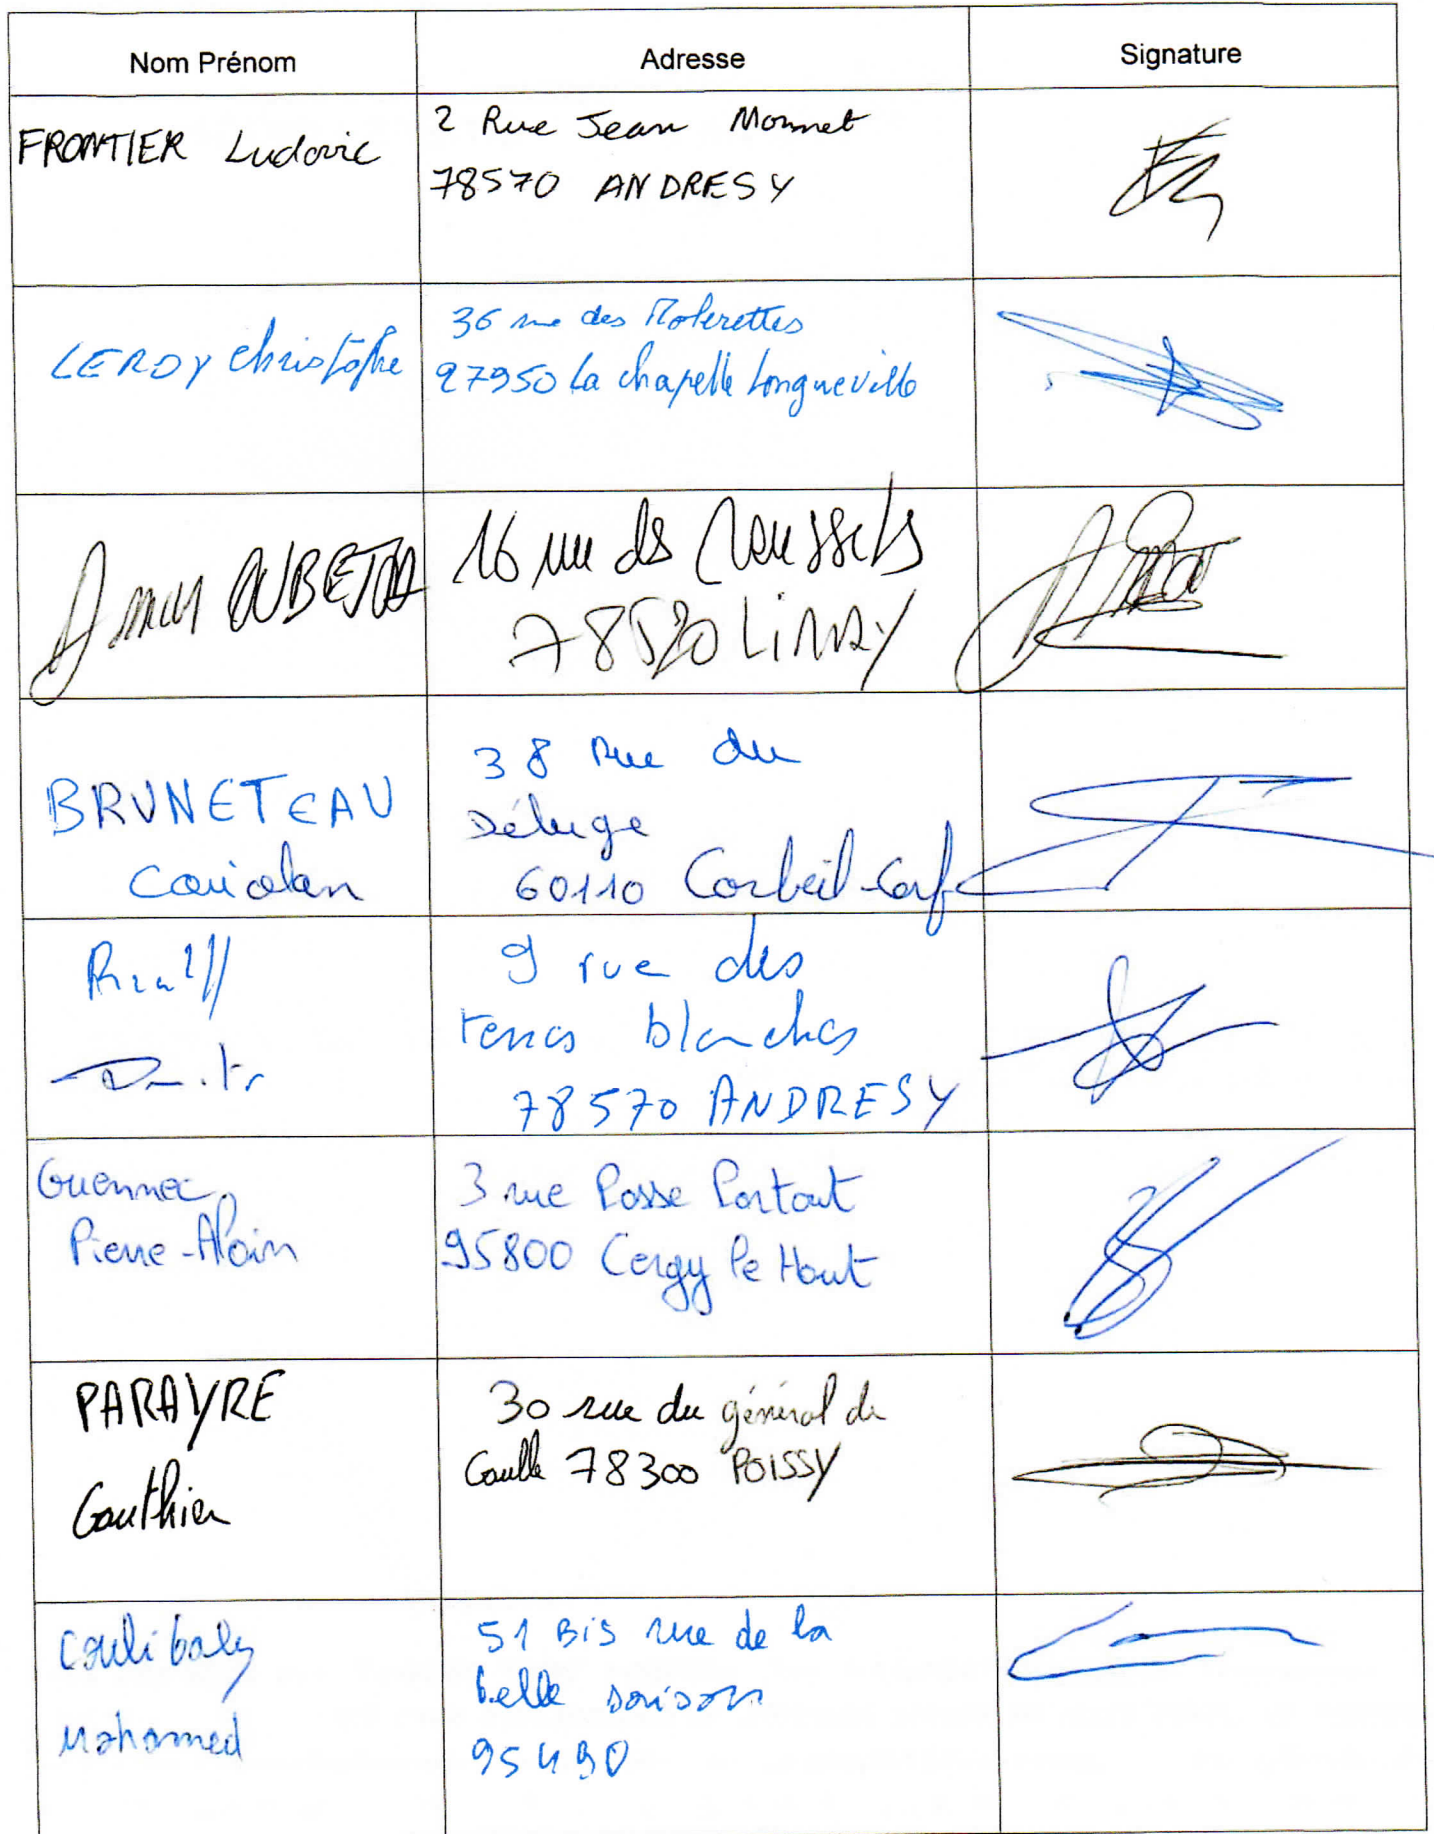 Nom Prénom
Adresse
Signature
FRONTIER Ludovic
2 Rue Jean Monnet
78570 ANDRESY
LEROY Christophe
36 rue des
27950 La chapelle Longueville
16 rue des
78520 LiMAY
BRUNETEAU
38 Rue du
Déluge
60110 Corbeil-Cerf
9 rue des
terres blanches
78570 ANDRESY
Guennec
Pierre-Alain
3 rue Passe Partout
95800 Cergy le Haut
PARAYRE
Gauthier
30 rue du général de
Gaulle 78300 POISSY
Coulibaly
Mohamed
51 Bis rue de la
belle saison
95490